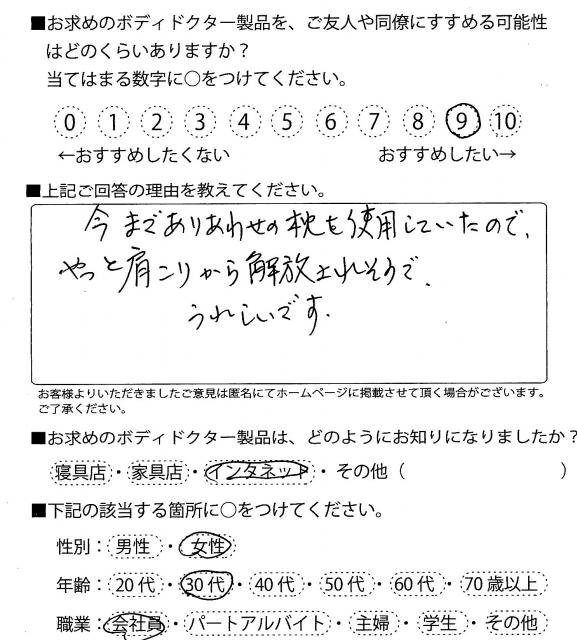 ■お求めのボディドクター製品を、ご友人や同僚にすすめる可能性
はどのくらいありますか？
当てはまる数字に○をつけてください。
0 1 2 3 4 5 6 7 8 9 10
←おすすめしたくない おすすめしたい→
■上記ご回答の理由を教えてください。
今までありあわせの枕を使用していたので、
やっと肩こりから解放されそうで、
うれしいです。
お客様よりいただきましたご意見は匿名にてホームページに掲載させて頂く場合がございます。
ご了承ください。
■お求めのボディドクター製品は、どのようにお知りになりましたか？
寝具店・家具店・インタネット・その他（ ）
■下記の該当する箇所に○をつけてください。
性別：男性・女性
年齢：20代・30代・40代・50代・60代・70歳以上
職業：会社員・パートアルバイト・主婦・学生・その他